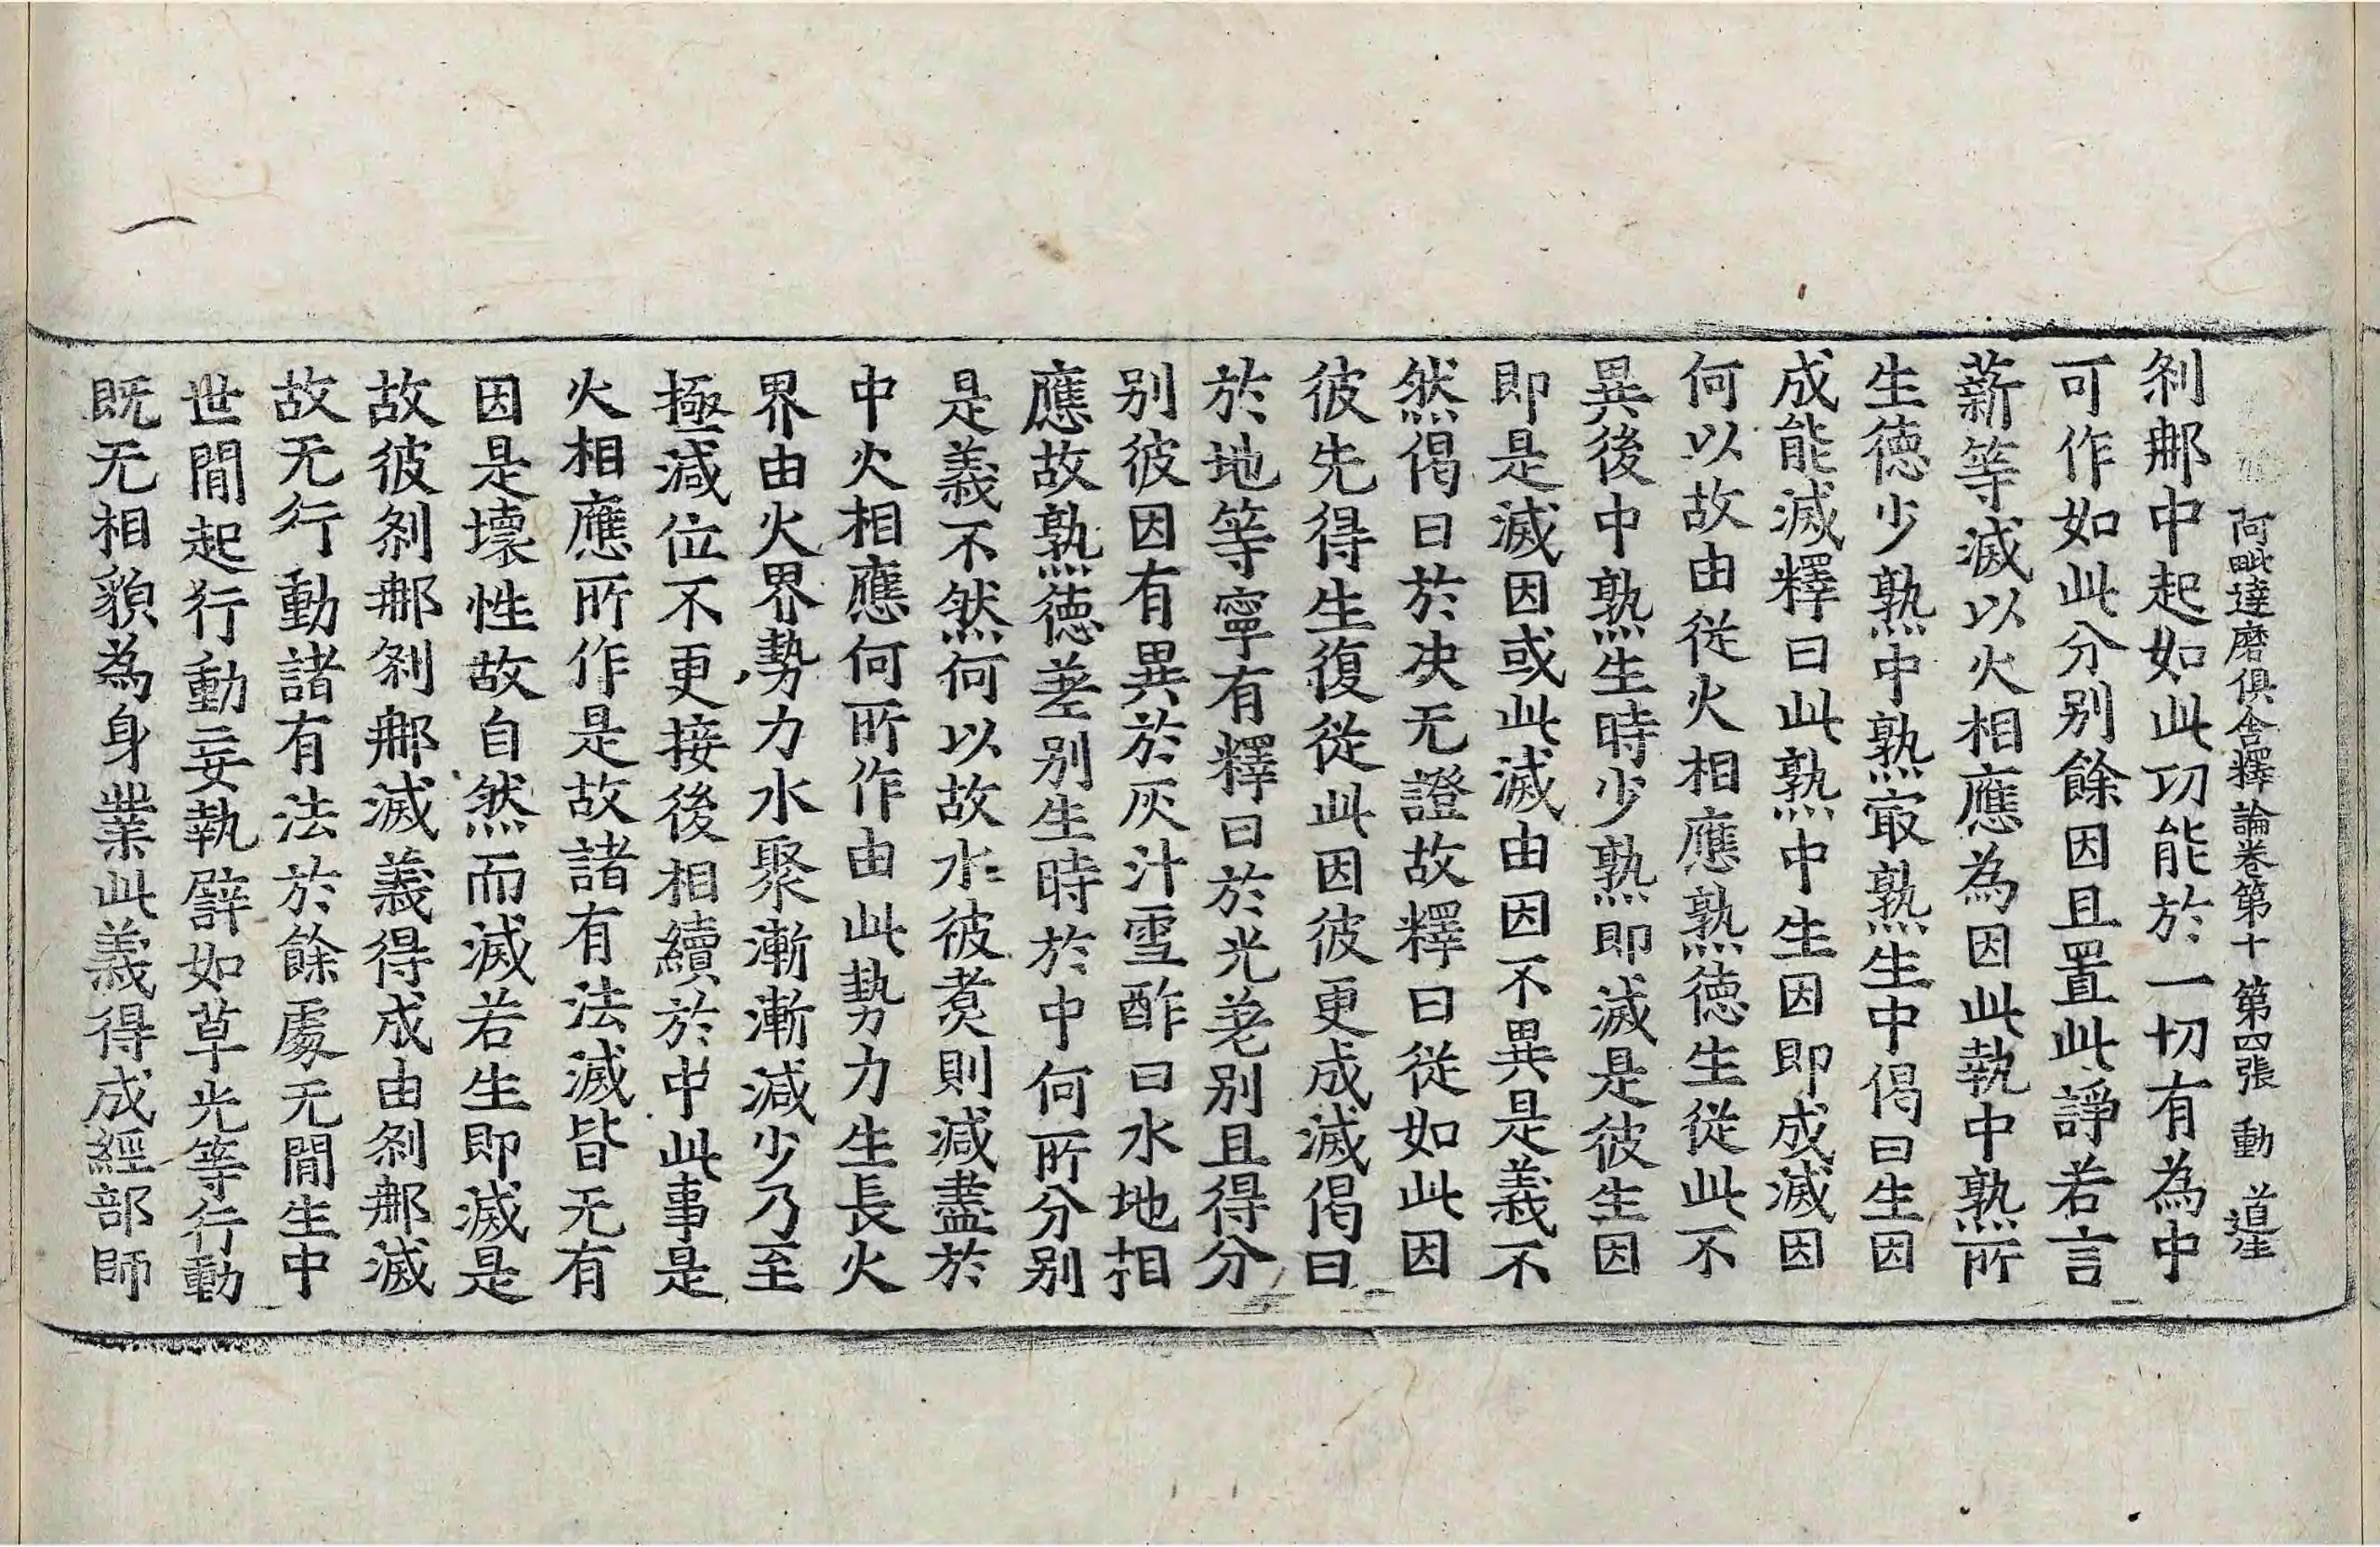 阿毗達磨俱舍釋論卷第十 第四張 動 道生
刹那中起如此功能於一切有為中
可作如此分别餘因且置此諍若言
薪等滅以火相應為因此執中熟所
生德少熟中熟㝡熟生中偈曰生因
成能滅釋曰此熟中生因即成滅因
何以故由從火相應熟德生從此不
異後中熟生時少熟即滅是彼生因
即是滅因或此滅由因不異是義不
然偈曰於决无證故釋曰從如此因
彼先得生復從此因彼更成滅偈曰
於地等寧有釋曰於光差别且得分
别彼因有異於灰汁雪酢日水地相
應故熟德差别生時於中何所分别
是義不然何以故水彼煮則減盡於
中火相應何所作由此勢力生長火
界由火界勢力水聚漸漸減少乃至
極減位不更接後相續於中此事是
火相應所作是故諸有法滅皆无有
因是壞性故自然而滅若生即滅是
故彼刹那刹那滅義得成由刹那滅
故无行動諸有法於餘處无閒生中
世閒起行動妄執譬如草光等行動
既无相貌為身業此義得成經部師